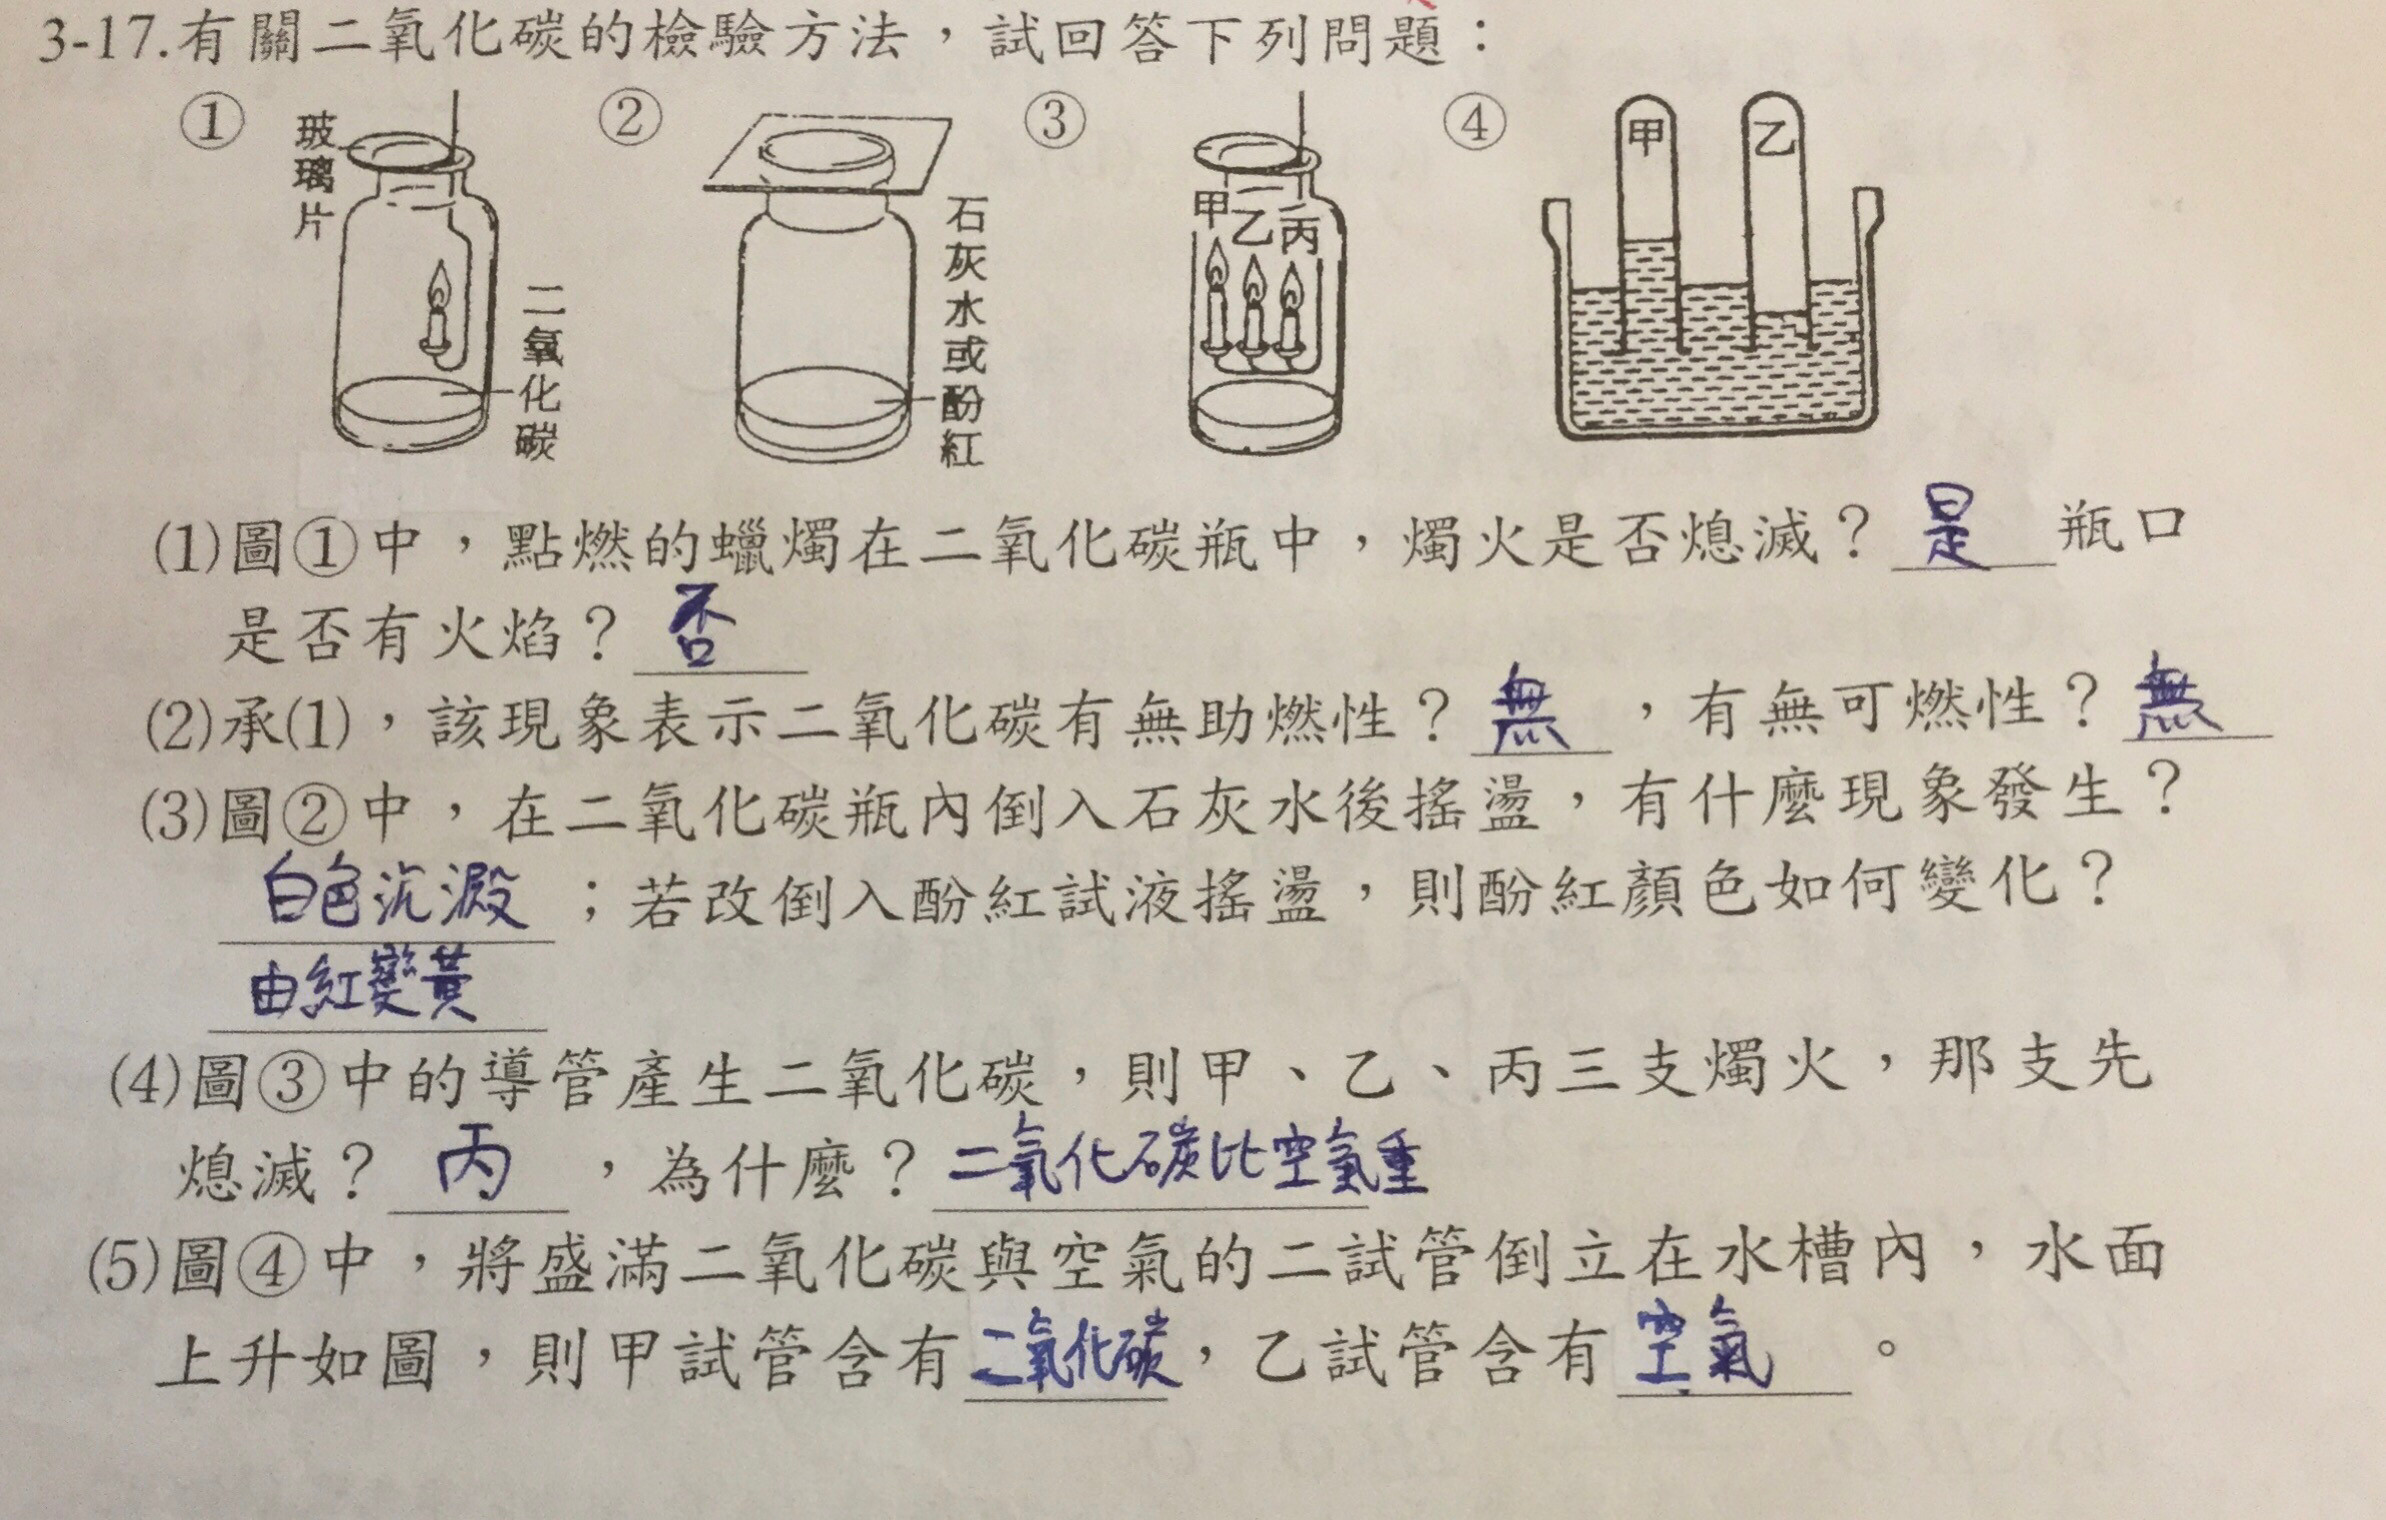 3-17.有關二氧化碳的檢驗方法，試回答下列問題：
① ② ③ ④
玻璃片
二氧化碳
石灰水或酚紅
甲 乙 丙
甲 乙
(1)圖①中，點燃的蠟燭在二氧化碳瓶中，燭火是否熄滅？是 瓶口
是否有火焰？否
(2)承(1)，該現象表示二氧化碳有無助燃性？無，有無可燃性？無
(3)圖②中，在二氧化碳瓶內倒入石灰水後搖盪，有什麼現象發生？
白色沉澱；若改倒入酚紅試液搖盪，則酚紅顏色如何變化？
由紅變黃
(4)圖③中的導管產生二氧化碳，則甲、乙、丙三支燭火，那支先
熄滅？丙，為什麼？二氧化碳比空氣重
(5)圖④中，將盛滿二氧化碳與空氣的二試管倒立在水槽內，水面
上升如圖，則甲試管含有二氧化碳，乙試管含有空氣。